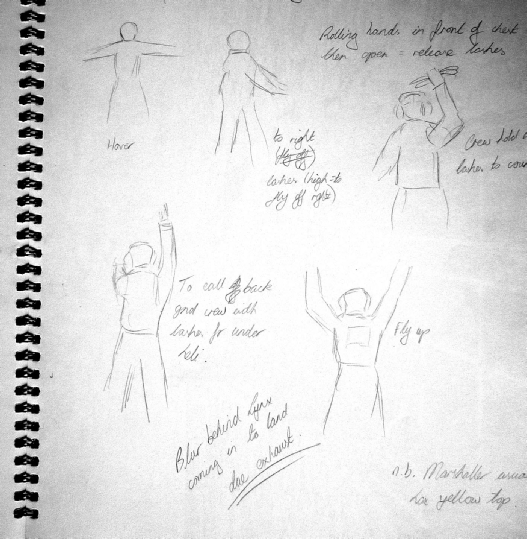 Rolling hands in front of chest
then open = release lashes
Hover
to right
(fly off)
lashes (high-to
fly off right)
Crew hold
lashes to
To call back
send crew with
lashes for under
heli.
Fly up
Blur behind Lynx
coming in to land
due exhaust.
n.b. Marshaller
yellow top.